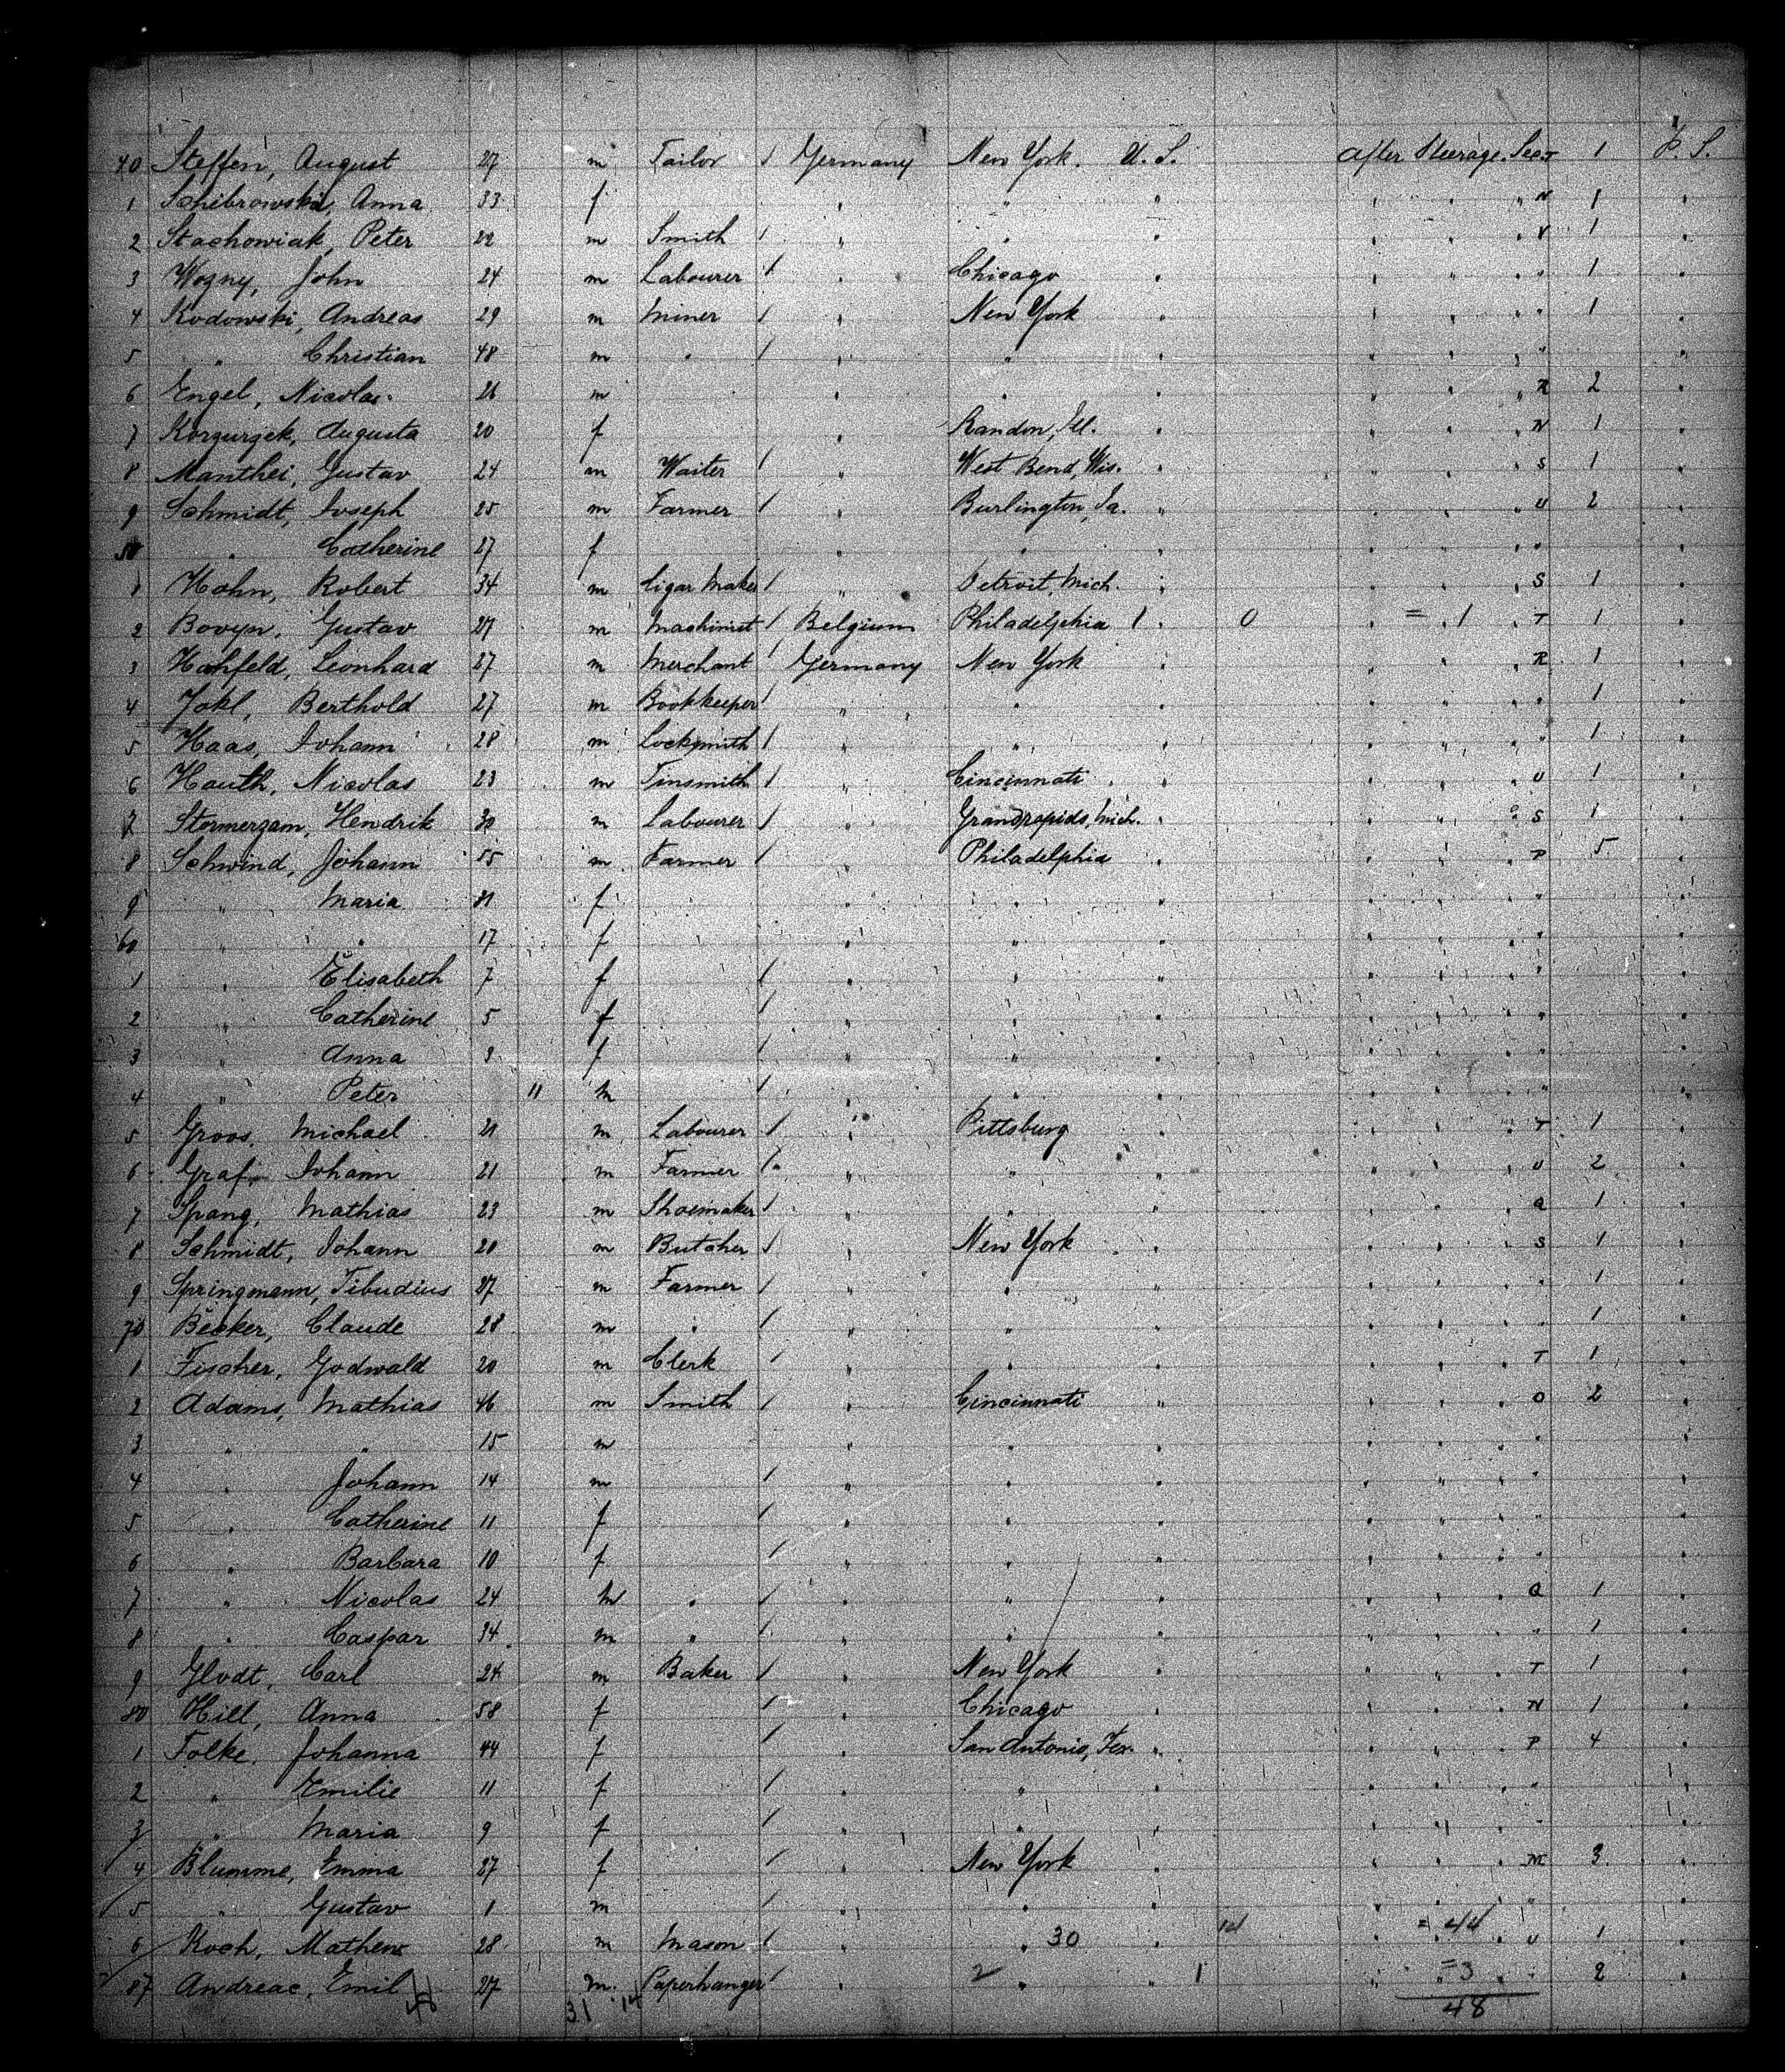 40 Steffen, August 27 m Tailor / Germany New York. U. S. After Steerage. Sec. T 1 P. S.
1 Schibrowska, Anna 33 f " " " " " " N 1 "
2 Stachowiak, Peter 22 m Smith / " " " " " " V 1 "
3 Wozny, John 24 m Labourer / " Chicago " " " " " 1 "
4 Kodowski, Andreas 29 m Miner / " New York " " " " " 1 "
5 " Christian 48 m " / " " " " " " " "
6 Engel, Nicolas 26 m " " " " " R 2 "
7 Korzurzek, Augusta 20 f " Randon, Ill. " " " " N 1 "
8 Manthei, Gustav 24 m Waiter / " West Bend, Wis. " " " " S 1 "
9 Schmidt, Joseph 25 m Farmer / " Burlington, Ia. " " " " U 2 "
50 " Catherine 27 f " " " " " " " "
1 Hohn, Robert 34 m Cigar Maker / " Detroit, Mich. " " " " S 1 "
2 Bovyn, Gustav 27 m Machinist / Belgium Philadelphia 1 " 0 " = " 1 " T 1 "
3 Hohfeld, Leonhard 27 m Merchant / Germany New York " " " " R 1 "
4 Jokl, Berthold 27 m Bookkeeper / " " " " " " " 1 "
5 Haas, Johann 28 m Locksmith / " " " " " " " 1 "
6 Hauth, Nicolas 23 m Tinsmith / " Cincinnati " " " " U 1 "
7 Stormerzam, Hendrik 30 m Labourer / " Grandrapids, Mich. " " " " S 1 "
8 Schwind, Johann 55 m Farmer / " Philadelphia " " " " P 5 "
9 " Maria f " " " " " " " "
60 " " 17 f " " " " " " " "
1 " Elisabeth 7 f / " " " " " " " "
2 " Catherine 5 f / " " " " " " " "
3 " Anna f / " " " " " " " "
4 " Peter 11 m / " " " " " " " "
5 Groos, Michael 21 m Labourer / " Pittsburg " " " " T 1 "
6 Graf, Johann 21 m Farmer / " " " " " " U 2 "
7 Spang, Mathias 23 m Shoemaker / " " " " " " Q 1 "
8 Schmidt, Johann 20 m Butcher / " New York " " " " S 1 "
9 Springmann, Tibudius 27 m Farmer / " " " " " " " 1 "
70 Becker, Claude 28 m " / " " " " " " " 1 "
1 Fischer, Godwald 20 m Clerk / " " " " " " T 1 "
2 Adams, Mathias 46 m Smith / " Cincinnati " " " " O 2 "
3 " " 15 m " " " " " " " "
4 " Johann 14 m / " " " " " " " "
5 " Catherine 11 f / " " " " " " " "
6 " Barbara 10 f / " " " " " " " "
7 " Nicolas 24 m " / " " " " " " Q 1 "
8 " Caspar 34 m " / " " " " " " " 1 "
9 Glodt, Carl 24 m Baker / " New York " " " " T 1 "
80 Hill, Anna 58 f / " Chicago " " " " N 1 "
1 Folke, Johanna 44 f / " San Antonio, Tex. " " " " P 4 "
2 " Emilie 11 f / " " " " " " " "
3 " Maria 9 f / " " " " " " " "
4 Blumme, Emma 27 f / " New York " " " " M 3 "
5 " Gustav 1 m / " " " " " " " "
6 Koch, Mathew 28 m Mason / " " 30 " 14 " = 44 " U 1 "
87 Andreae, Emil 27 m Paperhanger / " 2 " " 1 " = 3 " " 2
31 14 48